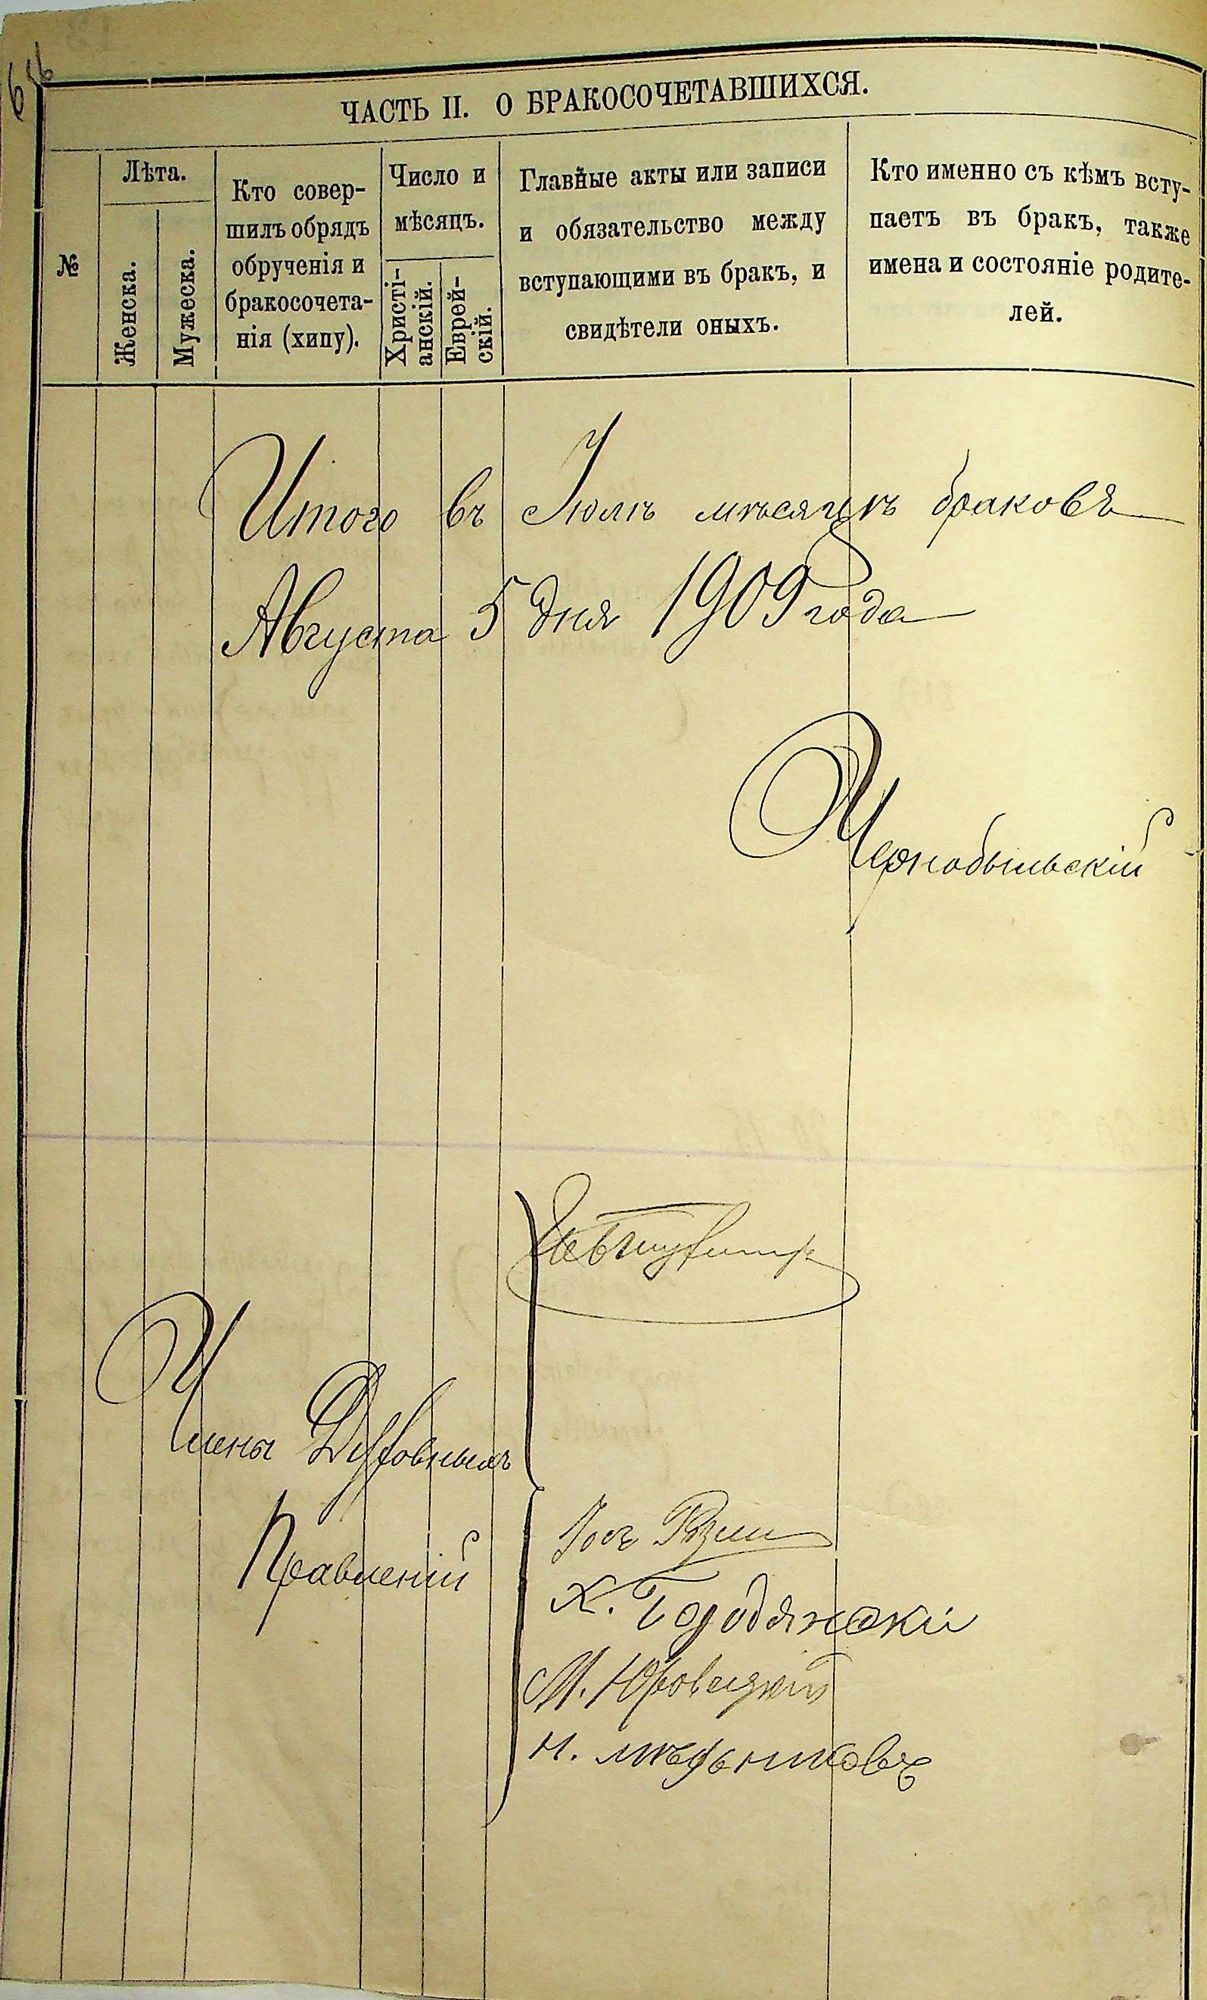 ЧАСТЬ II. О БРАКОСОЧЕТАВШИХСЯ.
№
Лѣта.
Женска.
Мужеска.
Кто совер-
шилъ обрядъ
обрученія и
бракосочета-
нія (хипу).
Число и
мѣсяцъ.
Христі-
анскій.
Еврей-
скій.
Главные акты или записи
и обязательство между
вступающими въ бракъ, и
свидѣтели оныхъ.
Кто именно съ кѣмъ всту-
паетъ въ бракъ, также
имена и состояніе родите-
лей.
Итого въ Іюлѣ мѣсяцѣ браковъ
Августа 5 дня 1909 года
Чернобыльскій
Члены Духовныхъ
Правленій
К. Бородянскій
М. Юровецкій
Н. Мѣльниковъ